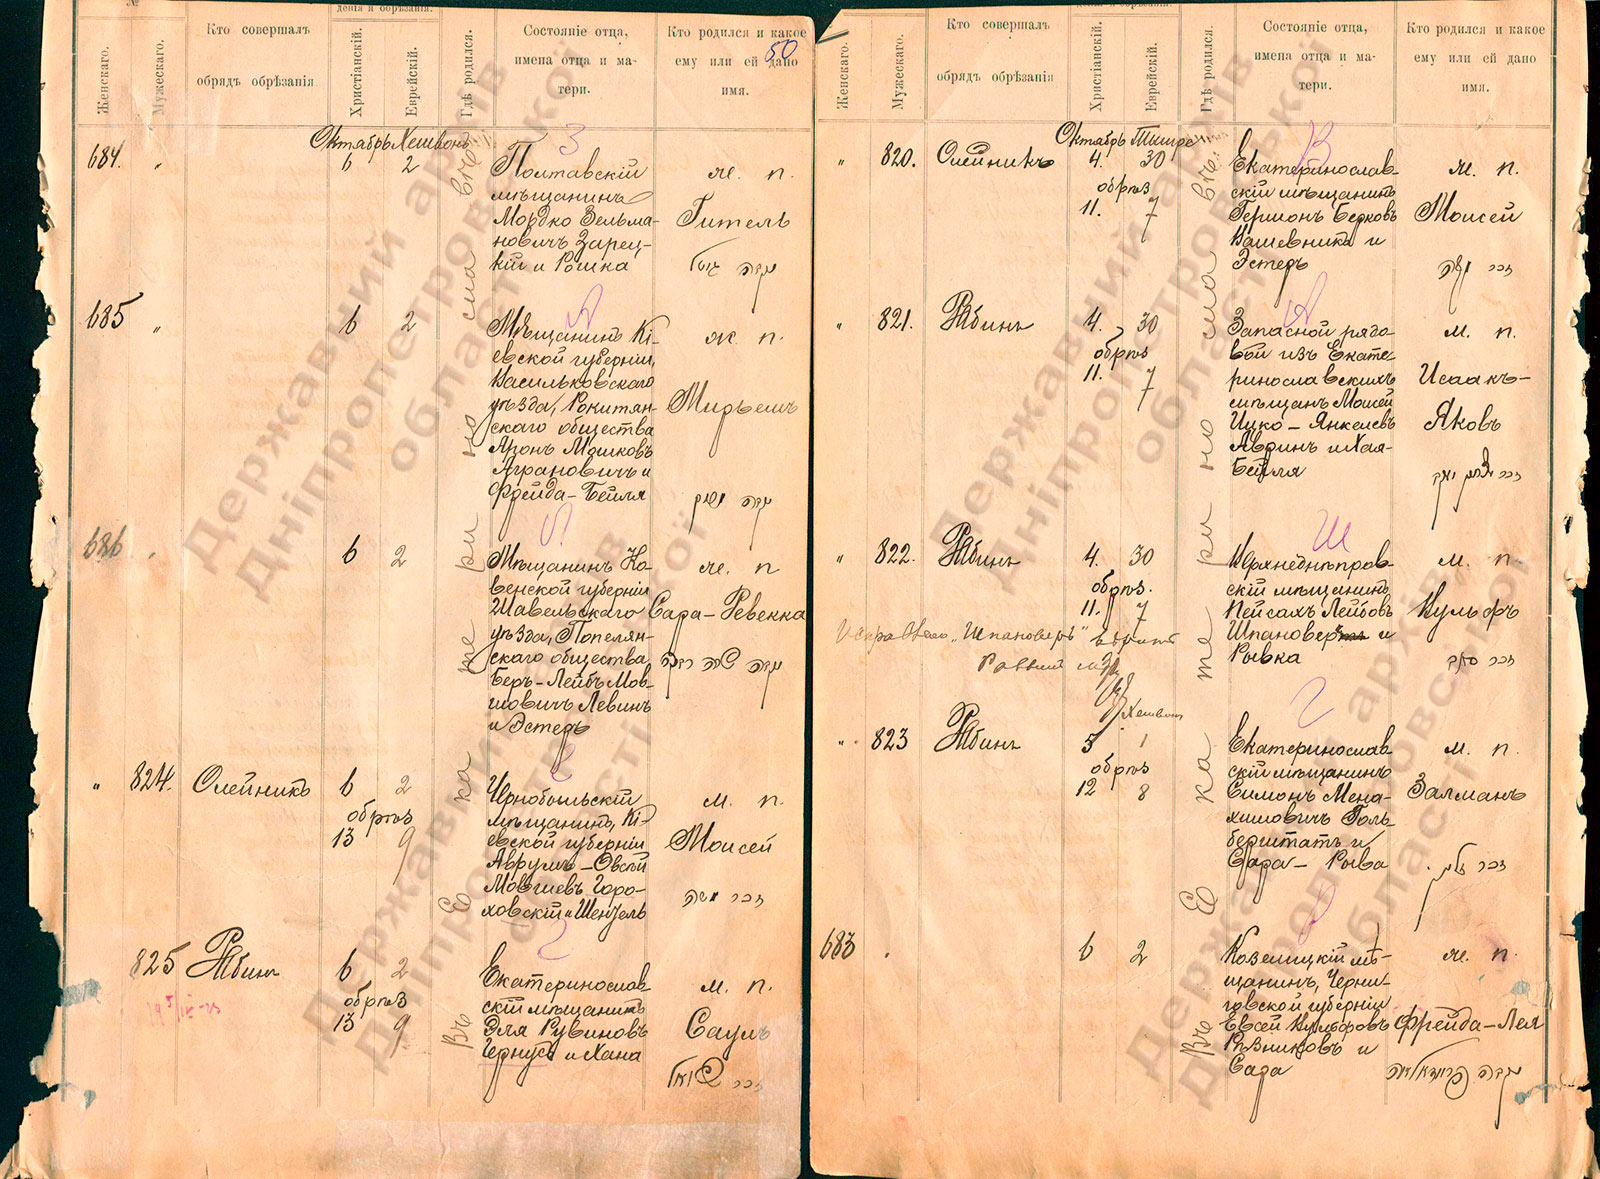 №
Женскаго.
Мужескаго.
Кто совершалъ
обрядъ обрѣзанія
дения и обрѣзанія.
Христіанскій.
Еврейскій.
Гдѣ родился.
Состояніе отца,
имена отца и ма-
тери.
Кто родился и какое
50
ему или ей дано
имя.
Октябрь Хешвонъ
684. "
6 2
Полтавскій
мѣщанинъ
Мордко Зельма-
новичъ Зарец-
кій и Рошка
ж. п.
Гитель
685 "
6 2
Мѣщанинъ Кі-
евской губерніи,
Васильковскаго
уѣзда, Рокитян-
скаго общества
Аронъ Мошковъ
Аграновичъ и
Фрейда-Бейля
ж. п.
Мирьемъ
686 "
6 2
Мѣщанинъ Ко-
венской губерніи
Шавельскаго
уѣзда, Попелян-
скаго общества
Беръ-Лейбъ Мов-
шовичъ Левинъ
и Эстеръ
ж. п
Сара-Ревекка
" 824.
Олейникъ
6 2
обрѣз
13 9
Чернобыльскій
мѣщанинъ, Кі-
евской губерніи
Аврумъ-Овсей
Мовшевъ Горо-
ховскій и Шенzель
м. п.
Моисей
825
Рябинъ
6 2
обрѣз
13 9
Екатеринослав-
скій мѣщанинъ
Эля Рувиновъ
Чернусъ и Хана
м. п.
Саулъ
Въ Екатеринославѣ
Женскаго.
Мужескаго.
Кто совершалъ
обрядъ обрѣзанія
Христіанскій.
Еврейскій.
Гдѣ родился.
Состояніе отца,
имена отца и ма-
тери.
Кто родился и какое
ему или ей дано
имя.
Октябрь Тишри
" 820.
Олейникъ
4. 30
обрѣз
11. 7
Екатеринослав-
скій мѣщанинъ
Гершонъ Берковъ
Вашевникъ и
Эстеръ
м. п.
Моисей
" 821.
Рябинъ
4. 30
обрѣз
11. 7
Запасной рядо-
вой изъ Екате-
ринославскихъ
мѣщанъ Моисей
Ицко-Янкелевъ
Авринъ и Хая-
Бейля
м. п.
Исаакъ-
Яковъ
" 822.
Рябинъ
4. 30
обрѣз.
11. 7
Верхнеднѣпров-
скій мѣщанинъ
Пейсахъ Лейбовъ
Шпановеръ и
Рывка
м. п.
Вульфъ
"Шпановеръ"
Раввинъ
Хешвонъ
" 823
Рябинъ
5 1
обрѣз
12 8
Екатеринослав-
скій мѣщанинъ
Симонъ Мена-
химовичъ Голь-
берштатъ и
Сара-Рыва
м. п.
Залманъ
683
6 2
Козелицкій мѣ-
щанинъ, Черни-
говской губерніи
Евсей Вульфовъ
Рѣзниковъ и
Сара
ж. п.
Фрейда-Лея
Въ Екатеринославѣ
Державний архів
Дніпропетровської
області